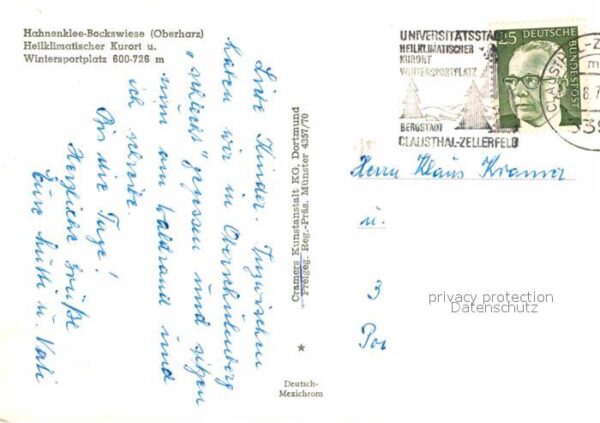 Hahnenklee-Bockswiese (Oberharz)
Heilklimatischer Kurort u.
Wintersportplatz 600-726 m
Liebe Kinder. Inzwischen
haben wir in
gegessen und sitzen
nun am Waldrand und
ich schreibe.
Bis die Tage!
Herzliche Grüße
Eure Mutti u. Vati
Cramers Kunstanstalt KG, Dortmund
Freigeg. Reg.-Präs. Münster 4357/70
Deutsch-
Mexichrom
UNIVERSITÄTSSTADT
HEILKLIMATISCHER
KURORT
WINTERSPORTPLATZ
BERGSTADT
CLAUSTHAL-ZELLERFELD
DEUTSCHE
BUNDESPOST
Herrn Klaus Kramer
u.
3
privacy protection
Datenschutz
Po